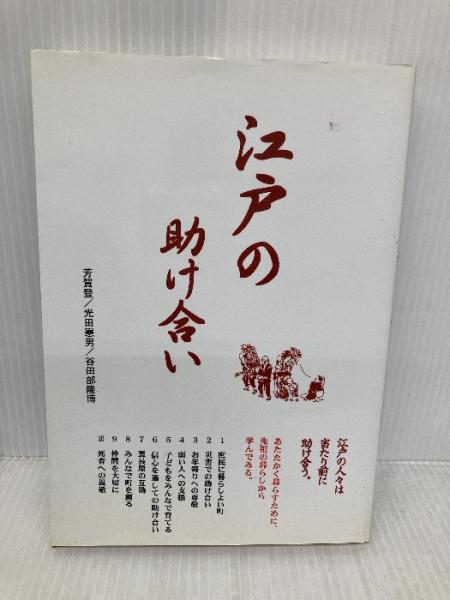 江戸の
助け合い
芳賀登/光田憲男/谷田部隆博
江戸の人々は
当たり前に
助け合う。
あたたかく暮らすために、
先祖の暮らしから
学んでみる。
1 庶民に暮らしよい町
2 災害での助け合い
3 お年寄りへの尊敬
4 弱い人への支援
5 子どもをみんなで育てる
6 信心を通しての助け合い
7 裏長屋の互助
8 みんなで町を創る
9 仲間を大切に
10 死者への親敬